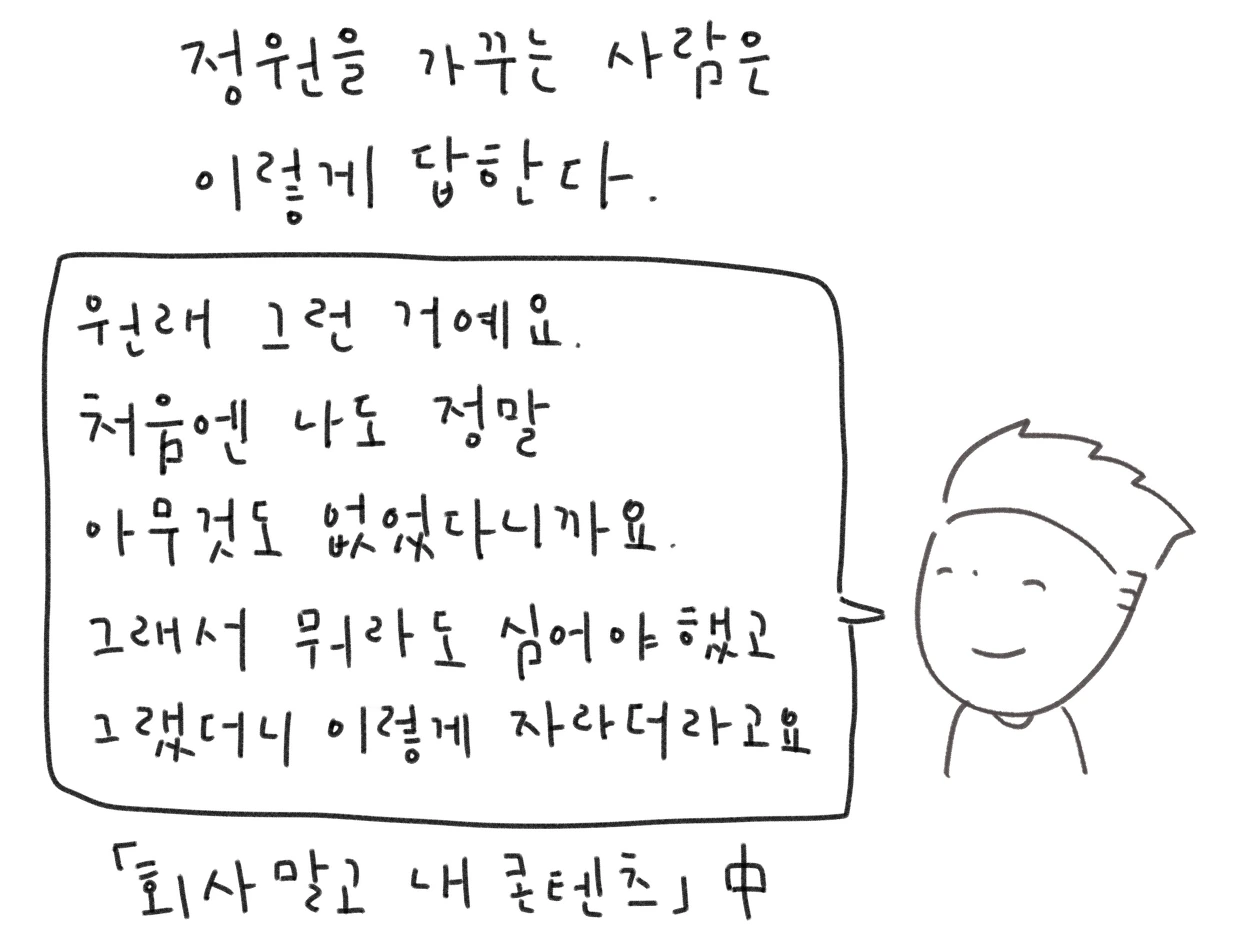 정원을 가꾸는 사람은
이렇게 답한다.
우런래 그런 거예요.
처음엔 나도 정말
아무것도 없었다니까요.
그래서 뭐라도 심어야 했고
그랬더니 이렇게 자라더라고요
「회사말고 내 콘텐츠」中